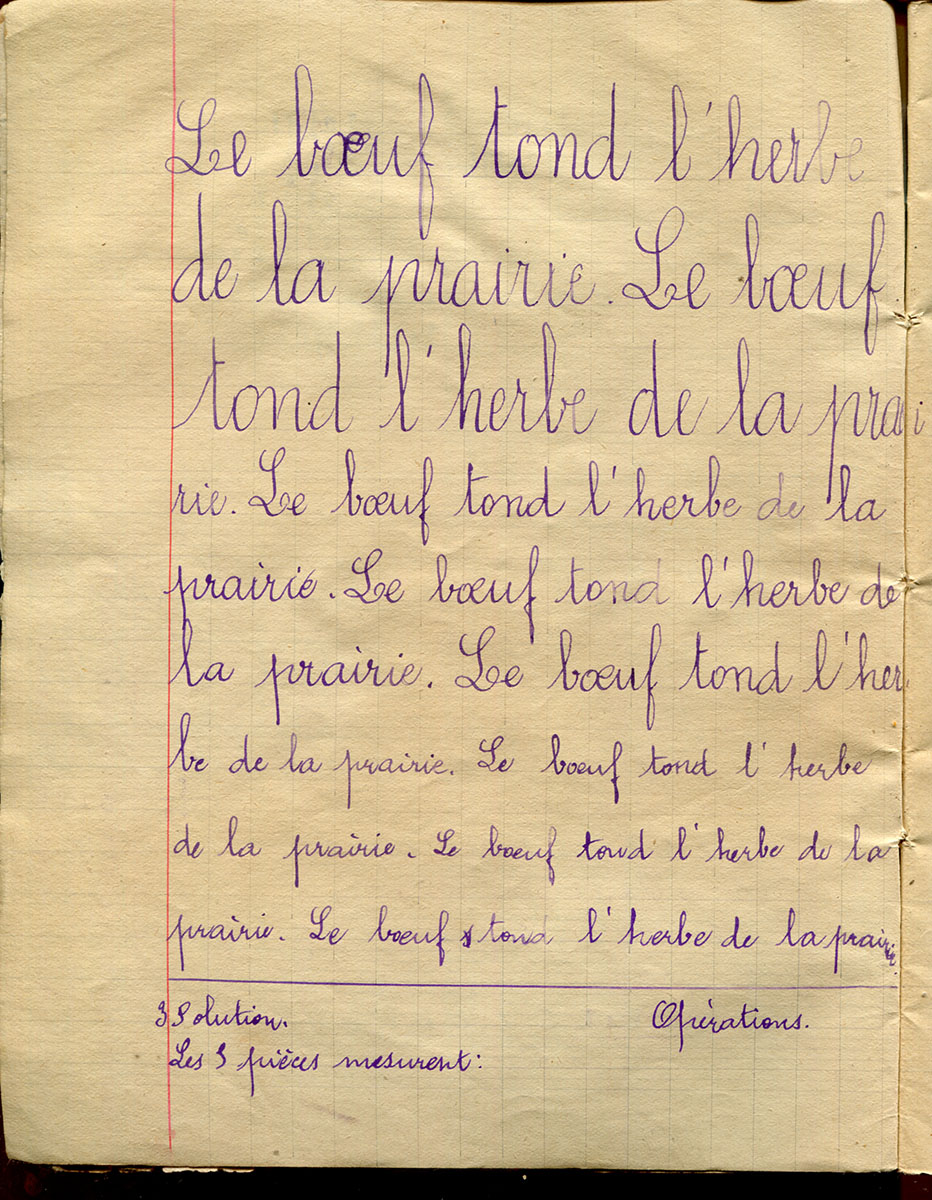 Le bœuf tond l'herbe
de la prairie. Le bœuf
tond l'herbe de la prai
rie. Le bœuf tond l'herbe de la
prairie. Le bœuf tond l'herbe de
la prairie. Le bœuf tond l'her
be de la prairie. Le bœuf tond l'herbe
de la prairie. Le bœuf tond l'herbe de la
prairie. Le bœuf tond l'herbe de la prairie.
3 Solution. Opérations.
Les 3 pièces mesurent: